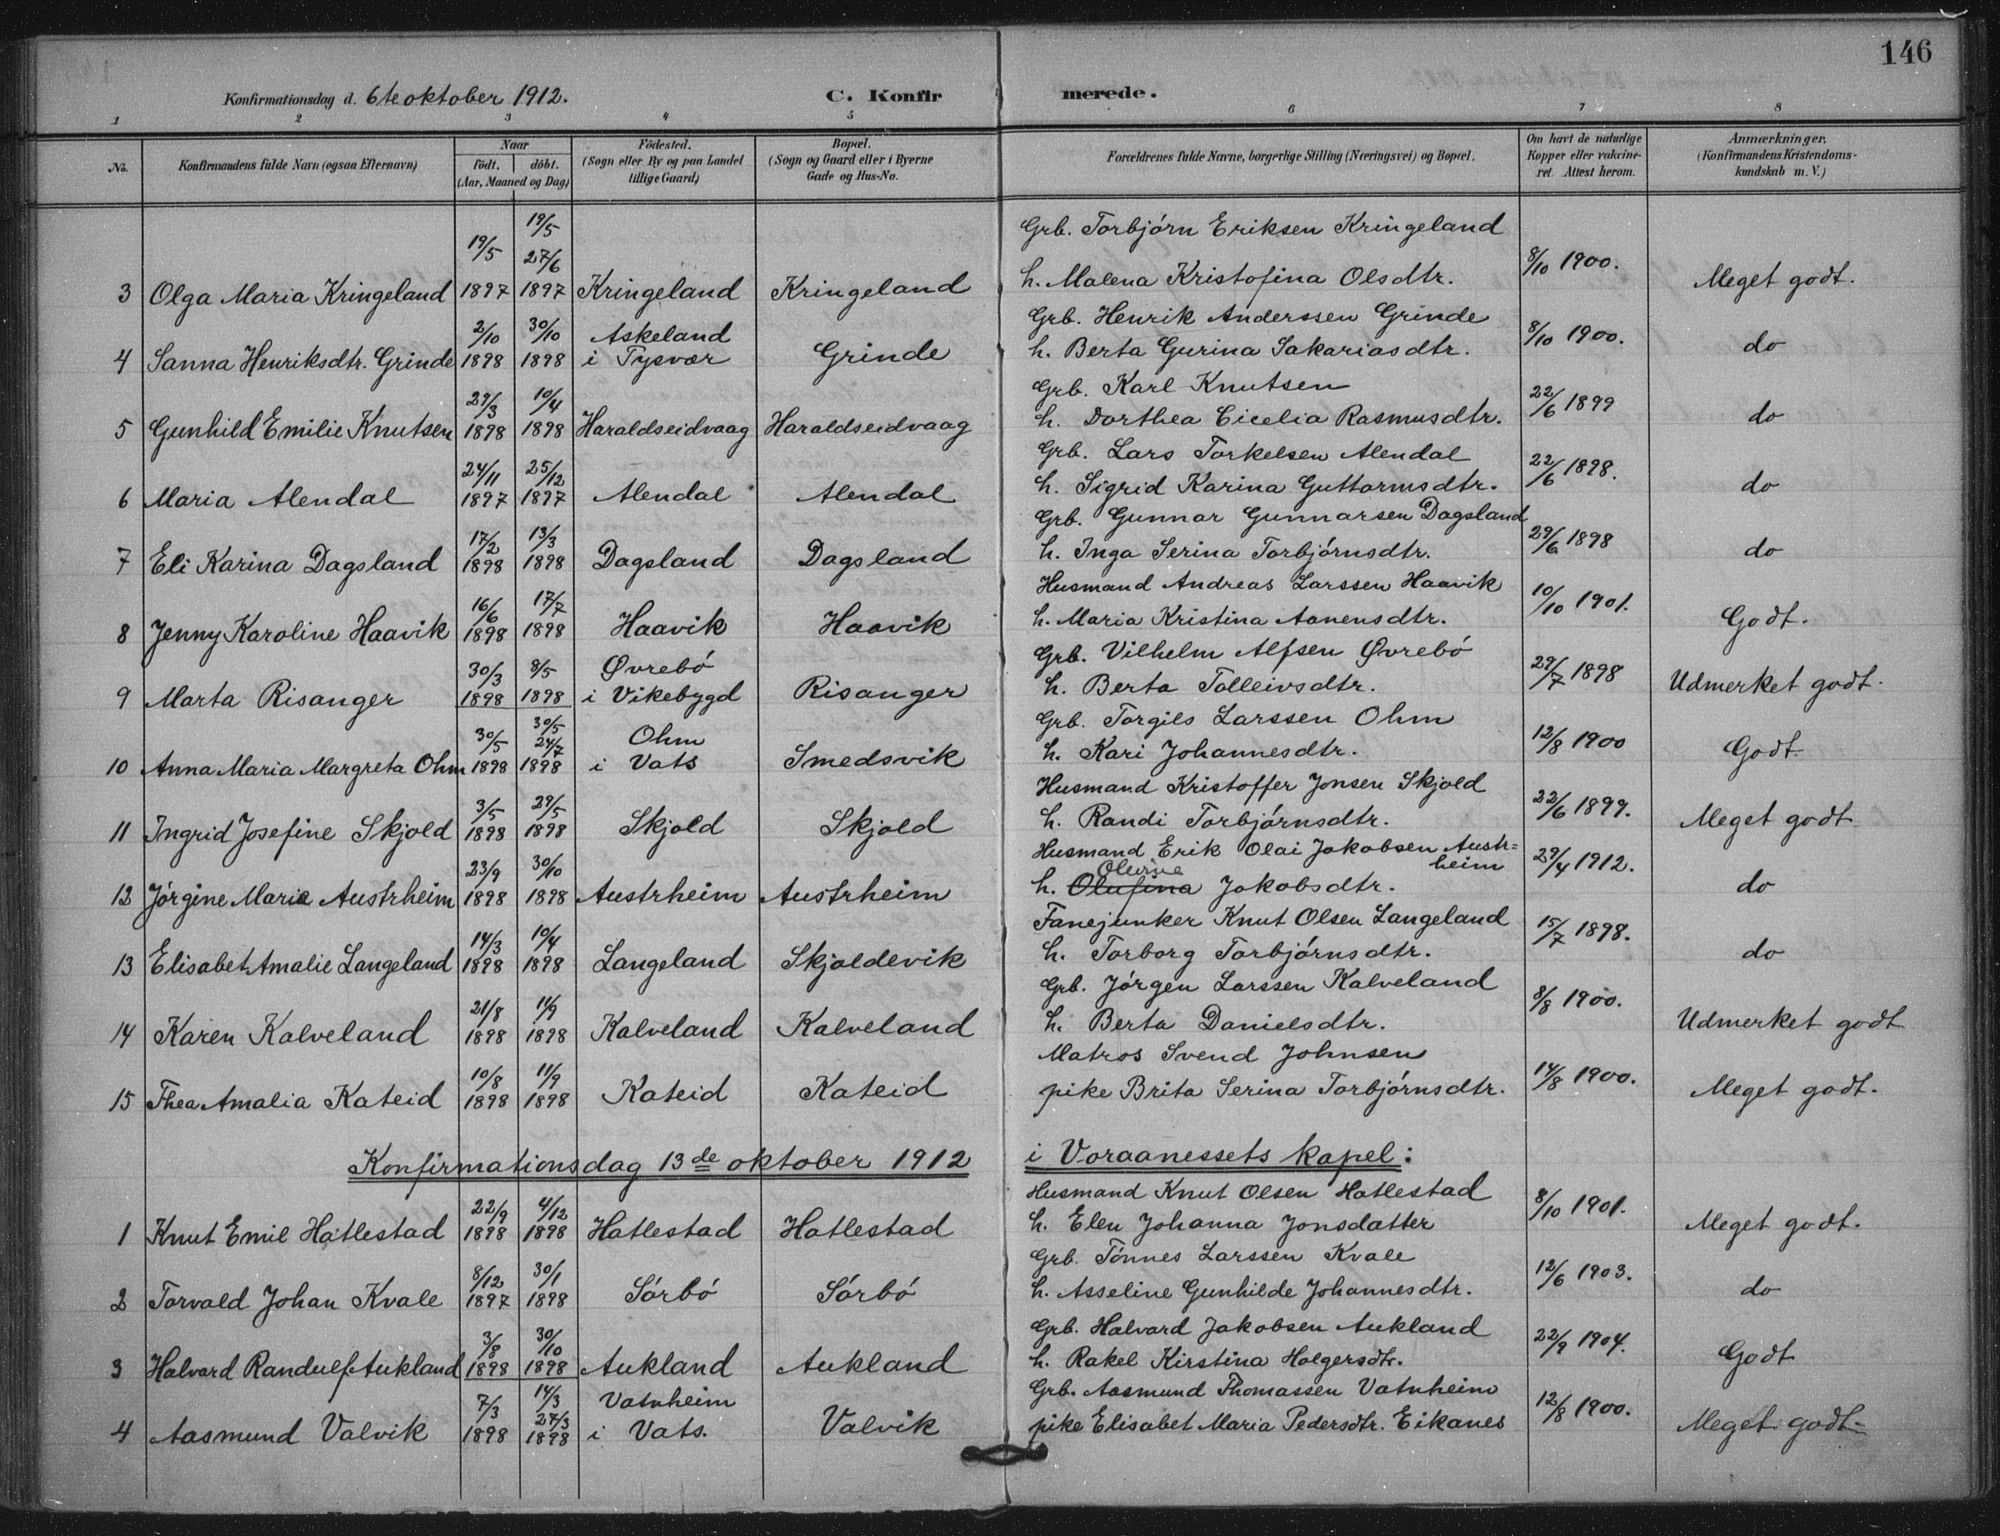 146
Konfirmationsdag d. 6te oktober 1912. C. Konfirmerede.
1 2 3 4 5 6 7 8
No. Konfirmandens fulde Navn (ogsaa Efternavn) Naar født. døbt. (Aar, Maaned og Dag) Fødested. (Sogn eller By og paa Landet tillige Gaard) Bopæl. (Sogn og Gaard eller i Byerne Gade og Hus-No. Forældrenes fulde Navne, borgerlige Stilling (Næringsvei) og Bopæl. Om havt de naturlige Kopper eller vakcineret. Attest herom. Anmærkninger, (Konfirmandens Kristendomskundskab m. V.)
19/5 19/5 27/6 Grb. Torbjørn Eriksen Kringeland
3 Olga Maria Kringeland 1897 1897 Kringeland Kringeland h. Malena Kristofina Olsdtr. 8/10 1900. Meget godt.
2/10 30/10 Askeland Grb. Henrik Anderssen Grinde
4 Sanna Henriksdtr. Grinde 1898 1898 i Tysvær Grinde h. Berta Gurina Sakariasdtr. 8/10 1900. do
29/3 10/4 Grb. Karl Knutsen
5 Gunhild Emilie Knutsen 1898 1898 Haraldseidvaag Haraldseidvaag h. Dorthea Cicelia Rasmusdtr. 22/6 1899 do
24/11 25/12 Grb. Lars Torkelsen Alendal
6 Maria Alendal 1897 1897 Alendal Alendal h. Sigrid Karina Guttormsdtr. 22/6 1898. do
17/2 13/3 Grb. Gunnar Gunnarsen Dagsland
7 Eli Karina Dagsland 1898 1898 Dagsland Dagsland h. Inga Serina Torbjørnsdtr. 29/6 1898 do
16/6 17/7 Husmand Andreas Larssen Haavik
8 Jenny Karoline Haavik 1898 1898 Haavik Haavik h. Maria Kristina Aanensdtr. 10/10 1901. Godt.
30/3 8/5 Øvrebø Grb. Vilhelm Alfsen Øvrebø
9 Marta Risanger 1898 1898 i Vikebygd Risanger h. Berta Tolleivsdtr. 29/7 1898 Udmerket godt.
30/5 30/5 24/7 Ohm Grb. Torgils Larssen Ohm
10 Anna Maria Margreta Ohm 1898 1898 i Vats Smedsvik h. Kari Johannesdtr. 12/8 1900 Godt
3/5 29/5 Husmand Kristoffer Jonsen Skjold
11 Ingrid Josefine Skjold 1898 1898 Skjold Skjold h. Randi Torbjørnsdtr. 22/6 1899. Meget godt
23/9 30/10 Husmand Erik Olai Jakobsen Austrheim
12 Jørgine Marie Austrheim 1898 1898 Austrheim Austrheim h. Olufina Olevine Jakobsdtr. 29/4 1912. do
14/3 10/4 Fanejunker Knut Olsen Langeland
13 Elisabet Amalie Langeland 1898 1898 Langeland Skjoldevik h. Torborg Torbjørnsdtr. 15/7 1898. do
21/8 11/9 Grb. Jørgen Larssen Kalveland
14 Karen Kalveland 1898 1898 Kalveland Kalveland h. Berta Danielsdtr. 8/8 1900. Udmerket godt
10/8 11/9 Matros Svend Johnsen
15 Thea Amalia Kateid 1898 1898 Kateid Kateid pike Brita Serina Torbjørnsdtr. 14/8 1900. Meget godt.
Konfirmationsdag 13de oktober 1912 i Voraanessets kapel:
22/9 4/12 Husmand Knut Olsen Hatlestad
1 Knut Emil Hatlestad 1898 1898 Hatlestad Hatlestad h. Elen Johanna Jonsdatter 8/10 1901. Meget godt.
8/12 30/1 Grb. Tönnes Larssen Kvale
2 Torvald Johan Kvale 1897 1898 Sørbø Sørbø h. Asseline Gunhilde Johannesdtr. 12/6 1903. do
3/8 30/10 Grb. Halvard Jakobsen Aukland
3 Halvard Randulf Aukland 1898 1898 Aukland Aukland h. Rakel Kirstina Holgersdtr. 22/9 1904. Godt
7/3 14/3 27/3 Vatnheim Grb. Aasmund Thomassen Vatnheim
4 Aasmund Valvik 1898 1898 i Vats. Valvik pike Elisabet Maria Pedersdtr. Eikanes 12/8 1900. Meget godt